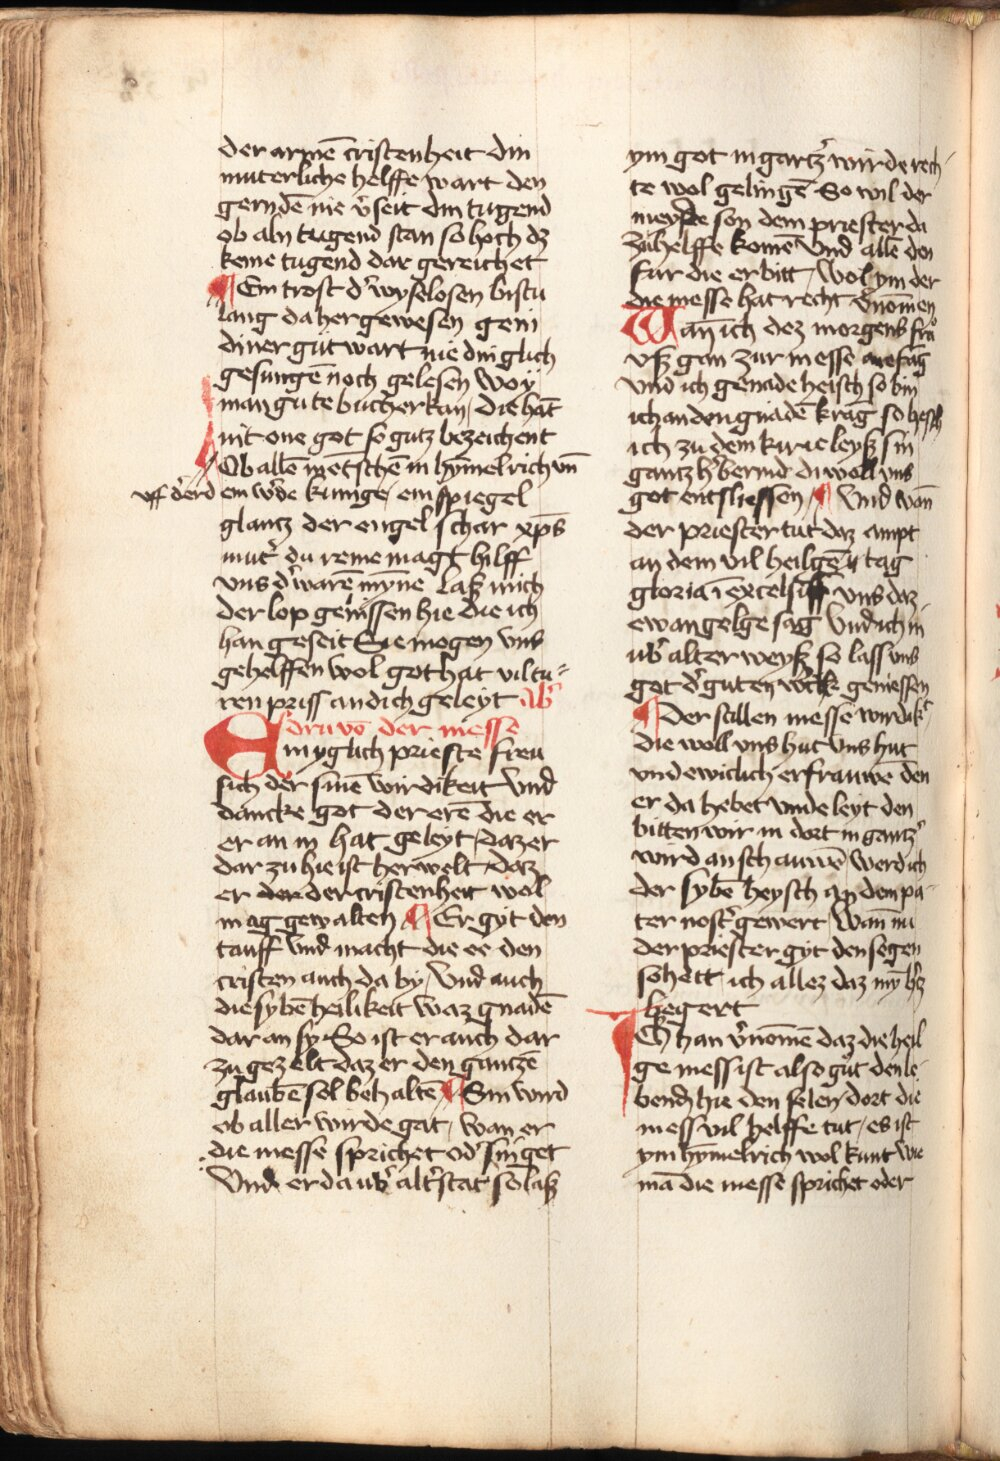 der armē cristenheit din
muterliche helffe wart den
gerndē nie v̉seit din tugend
ob aln tugend stan so hoch dz
keine tugend dar gereichet
¶ Ein trost d̉ wyselosen bistu
lang da her gewesen gein
diner gut wart nie dinglich
gesungē noch gelesen woy
man gute bucher kan / die hāt
mit one got so gutz bezeichent
Ob allē mētschē in hym̄elrich vn̄
vff d̉ erd em w̉de kunige / ein spiegel
glantz der engel schar xp̄s
mut̉ du reine magt hilff
vns d̉ warē myne laß mich
der lop genissen hie die ich
han geseit Sie mogen vns
gehelffen wol got hat vil tu
ren priss an dich geleyt Ab̉
dru vō der messe
Ein yglich prieste freu
sich der sinē wirdikeit Vnd
dancke got der erē die er
er an in hat geleyt / daz er
dar zu hie ist herwelt / daz
er den der cristenheit wol
mag gewalten ¶ Er gyt den
tauff vnd macht die ee den
cristen auch da by / Vnd auch
die sybē heilikeit waz gnadē
dar an sy / So ist er auch dar
zu gezelt daz er den gantzē
glaubē sol behaltē ¶ Sin wird
ob aller wirde gat / wan er
die messe sprichet od̉ singet
Vnd er da ub̉ alt̉ stat so laß
ym got in gartz̉ wirde rech
te wol gelingē So wil der
meyde son dem priester da
zu helffe komē Vnd allē den
fur die er bitt / Wol ym der
die messe hat recht v̉nom̄en
Wan̄ ich dez morgens frů
vß gan zur messe
vnd ich genade heisch so bin
ich an den gnadē krag so hesch
ich zu dem kirieleyß sin
gantz h̉bermd du woll vns
got entsliessen / ¶ Vnd wan̄
der priester tut daz ampt
an dem vil heilgē tag
gloria ī excelsis vns daz
ewangelge sag Vnd ich in
ub̉ alter weyß so lass vns
got d̉ guten w̉ck geniessen
¶ Der stillen messe wirdik̉t
die woll vns hut vns hut
vnd ewiclich erfrauwē den
er da hebet vnde leyt den
bitten wir in dort in gantz̉
wird an schauwē Werd ich
der sybē heysch an dem pa
ter nost̉ gewert / Wan̄ nu
der priester gyt den segen
so hett ich allez daz my̅ h̉z
begert
Ich han v̉nom̄ē daz die heil
ge mess ist also gut den le
bend hie den selen dort die
mess vil helffe tut / es ist
ym hymelrich wol kunt wie
mā die messe sprichet oder